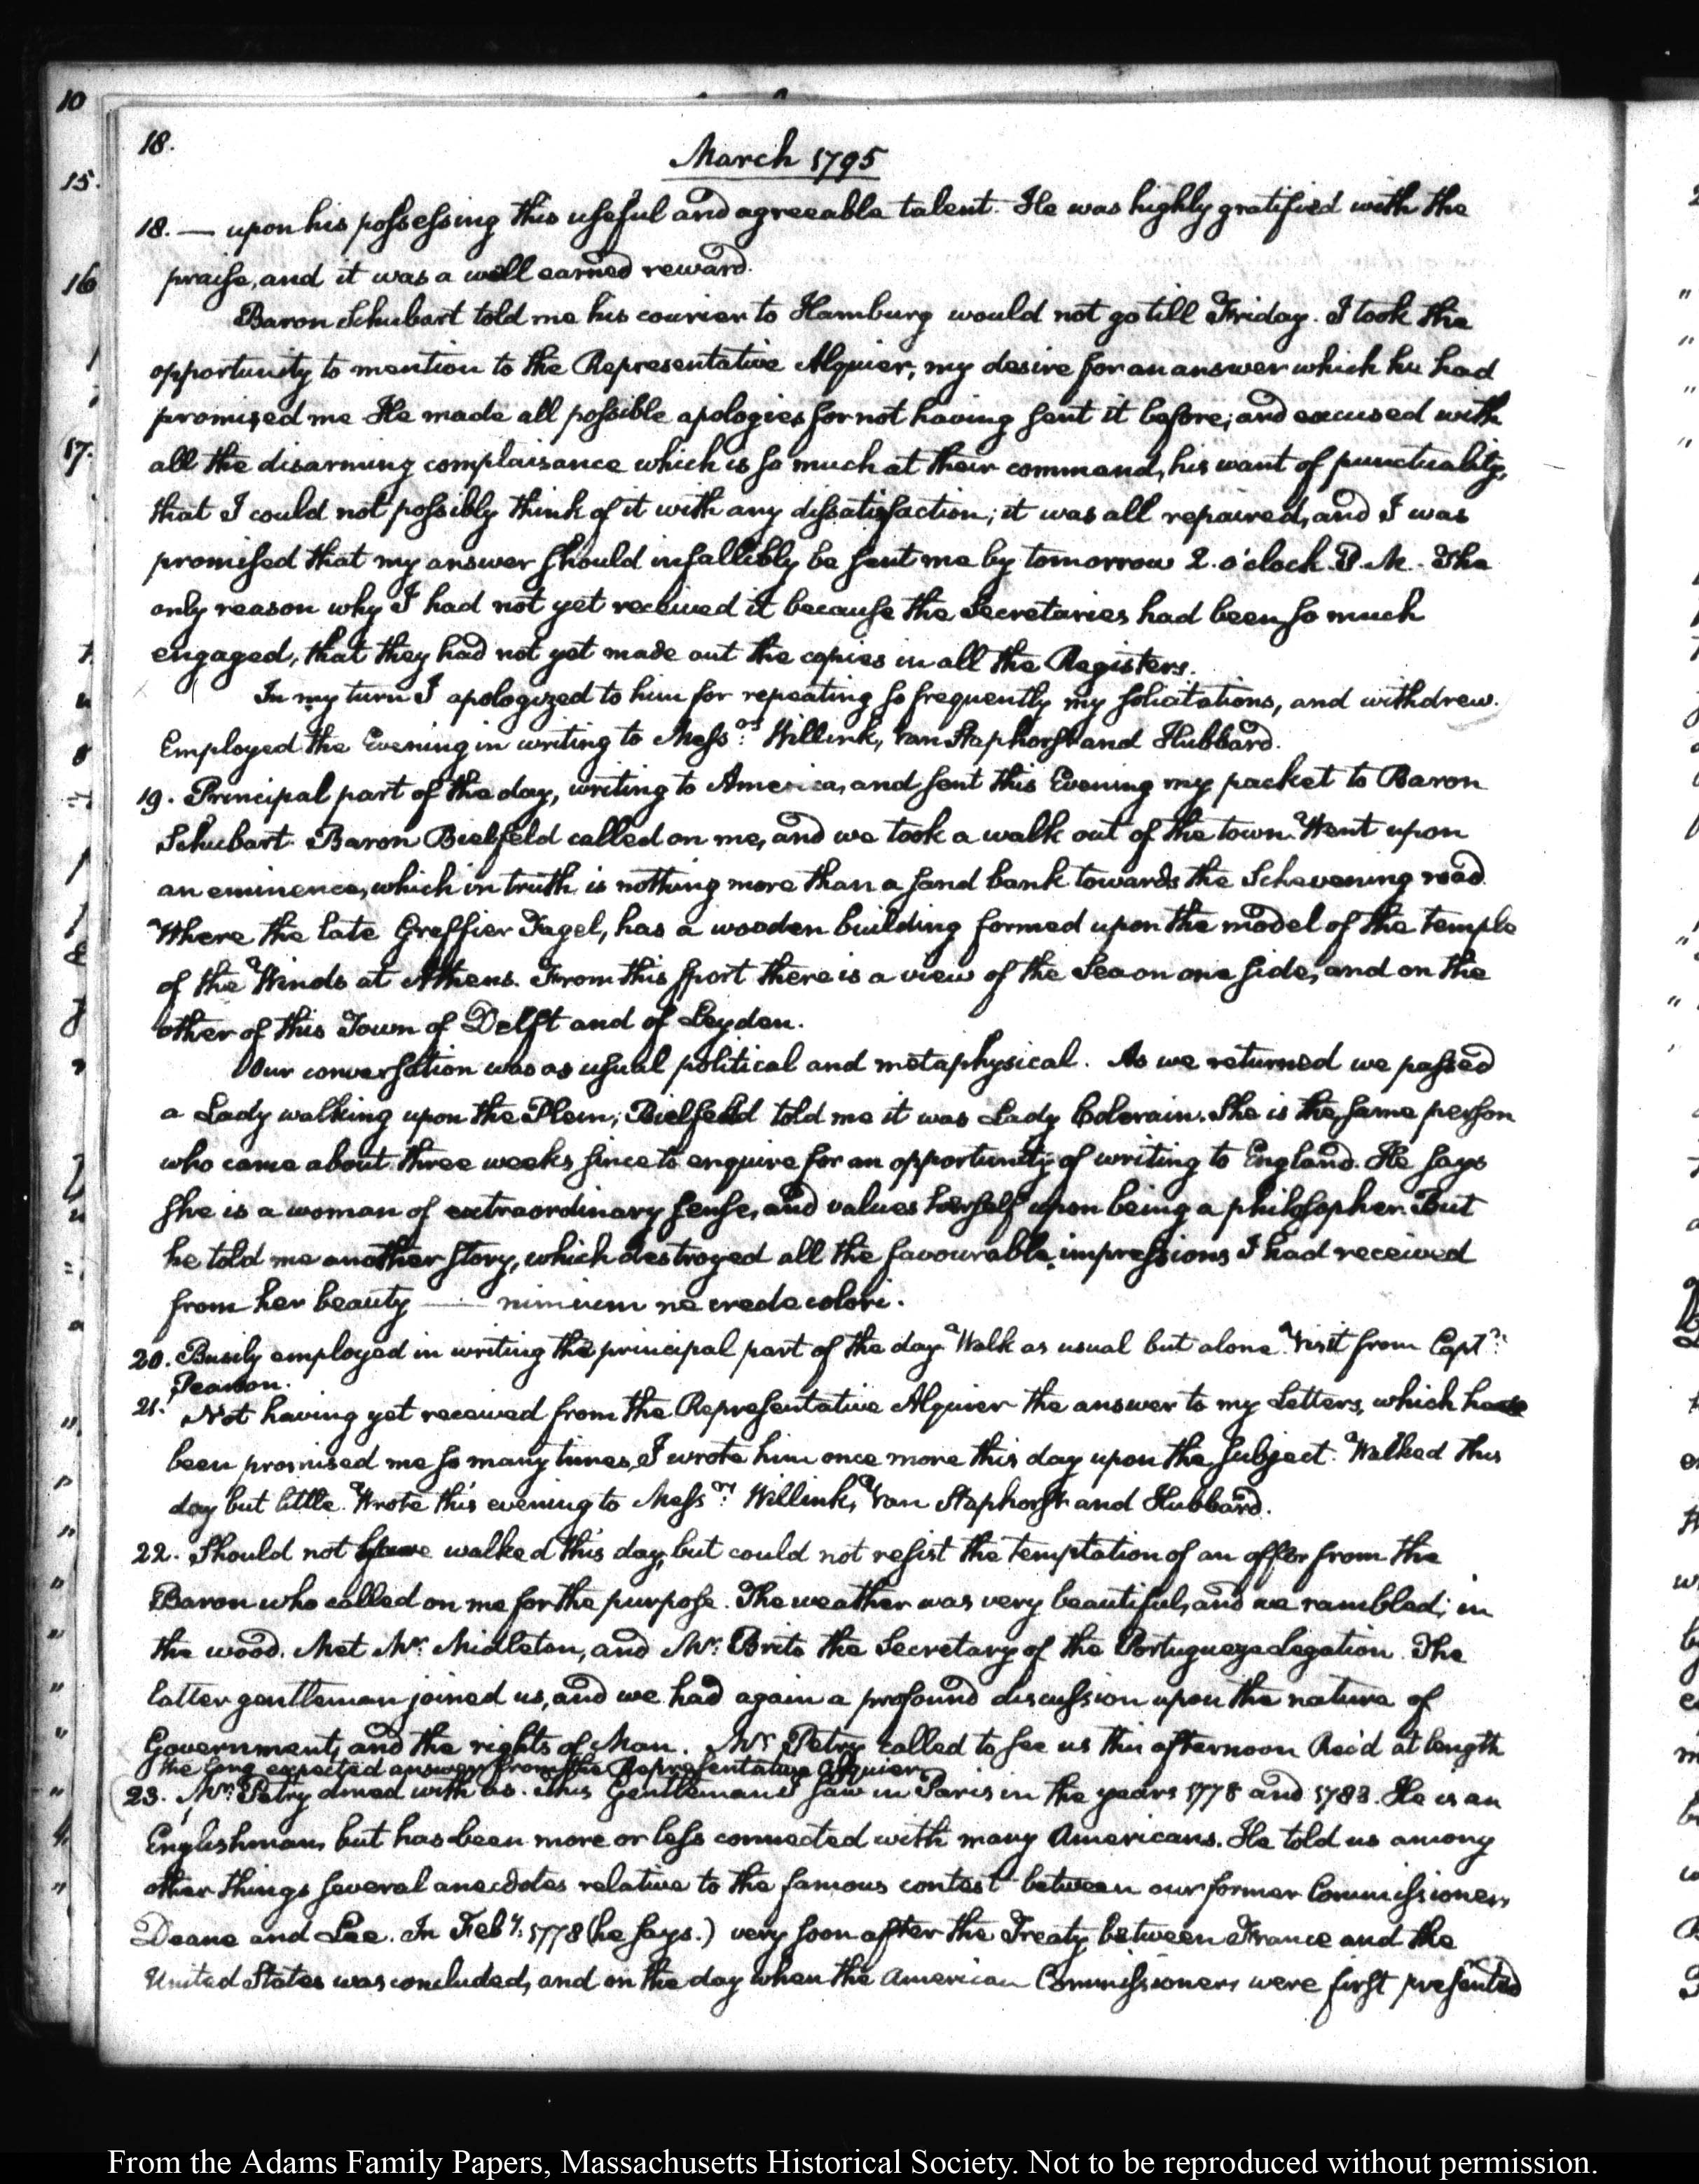 10
15.
16
17.
18.
March 1795
18. — upon his possessing this useful and agreeable talent. He was highly gratified with the
praise, and it was a well earned reward.
Baron Schubart told me his courier to Hamburg would not go till Friday. I took the
opportunity to mention to the Representative Alquier, my desire for an answer which he had
promised me He made all possible apologies for not having sent it before; and excused with
all the disarming complaisance which is so much at their command, his want of punctuality,
that I could not possibly think of it with any dissatisfaction; it was all repaired, and I was
promised that my answer should infallibly be sent me by tomorrow 2. o'clock P.M. The
only reason why I had not yet received it because the Secretaries had been so much
engaged, that they had not yet made out the copies in all the Registers.
In my turn I apologized to him for repeating so frequently my solicitations, and withdrew.
Employed the Evening in writing to Mess.rs Willink, Van Staphorst and Hubbard.
19. Principal part of the day, writing to America, and sent this Evening my packet to Baron
Schubart. Baron Bielfeld called on me, and we took a walk out of the town. Went upon
an eminence, which in truth is nothing more than a sand bank towards the Schevening road.
Where the late Greffier Fagel, has a wooden building formed upon the model of the temple
of the Winds at Athens. From this sport there is a view of the Sea on one side, and on the
other of this Town of Delft and of Leyden.
Our conversation was as usual political and metaphysical. As we returned we passed
a Lady walking upon the Plein; Bielfeld told me it was Lady . She is the same person
who came about three weeks since to enquire for an opportunity of writing to England. He says
she is a woman of extraordinary sense, and values herself upon being a philosopher. But
he told me another story, which destroyed all the favourable impressions I had received
from her beauty —— nimium ne crede colori.
20. Busily employed in writing the principal part of the day. Walk as usual but alone. Visit from Capt.n
Pearson.
21. Not having yet received from the Representative Alquier the answer to my Letters, which have
been promised me so many times, I wrote him once more this day upon the subject. Walked this
day but little. Wrote this evening to Mess.rs Willink, Van Staphorst and Hubbard.
22. Should not have walked this day, but could not resist the temptation of an offer from the
Baron who called on me for the purpose. The weather was very beautiful, and we rambled; in
the wood. Met Mr. Midleton, and Mr. Brito the Secretary of the Portugueze Legation. The
latter gentleman joined us, and we had again a profound discussion upon the nature of
Government, and the rights of Man. Mr. Petry called to see us this afternoon Rec'd at length
the long expected answer from the Representative Alquier
23. Mr. Petry dined with us. This Gentleman I saw in Paris in the years 1778 and 1783. He is an
Englishman, but has been more or less connected with many Americans. He told us among
other things several anecdotes relative to the famous contest between our former Commissioners
Deane and Lee. In Feb.y 1778 (he says.) very soon after the Treaty between France and the
United States was concluded, and on the day when the American Commissioners were first presented
From the Adams Family Papers, Massachusetts Historical Society. Not to be reproduced without permission.